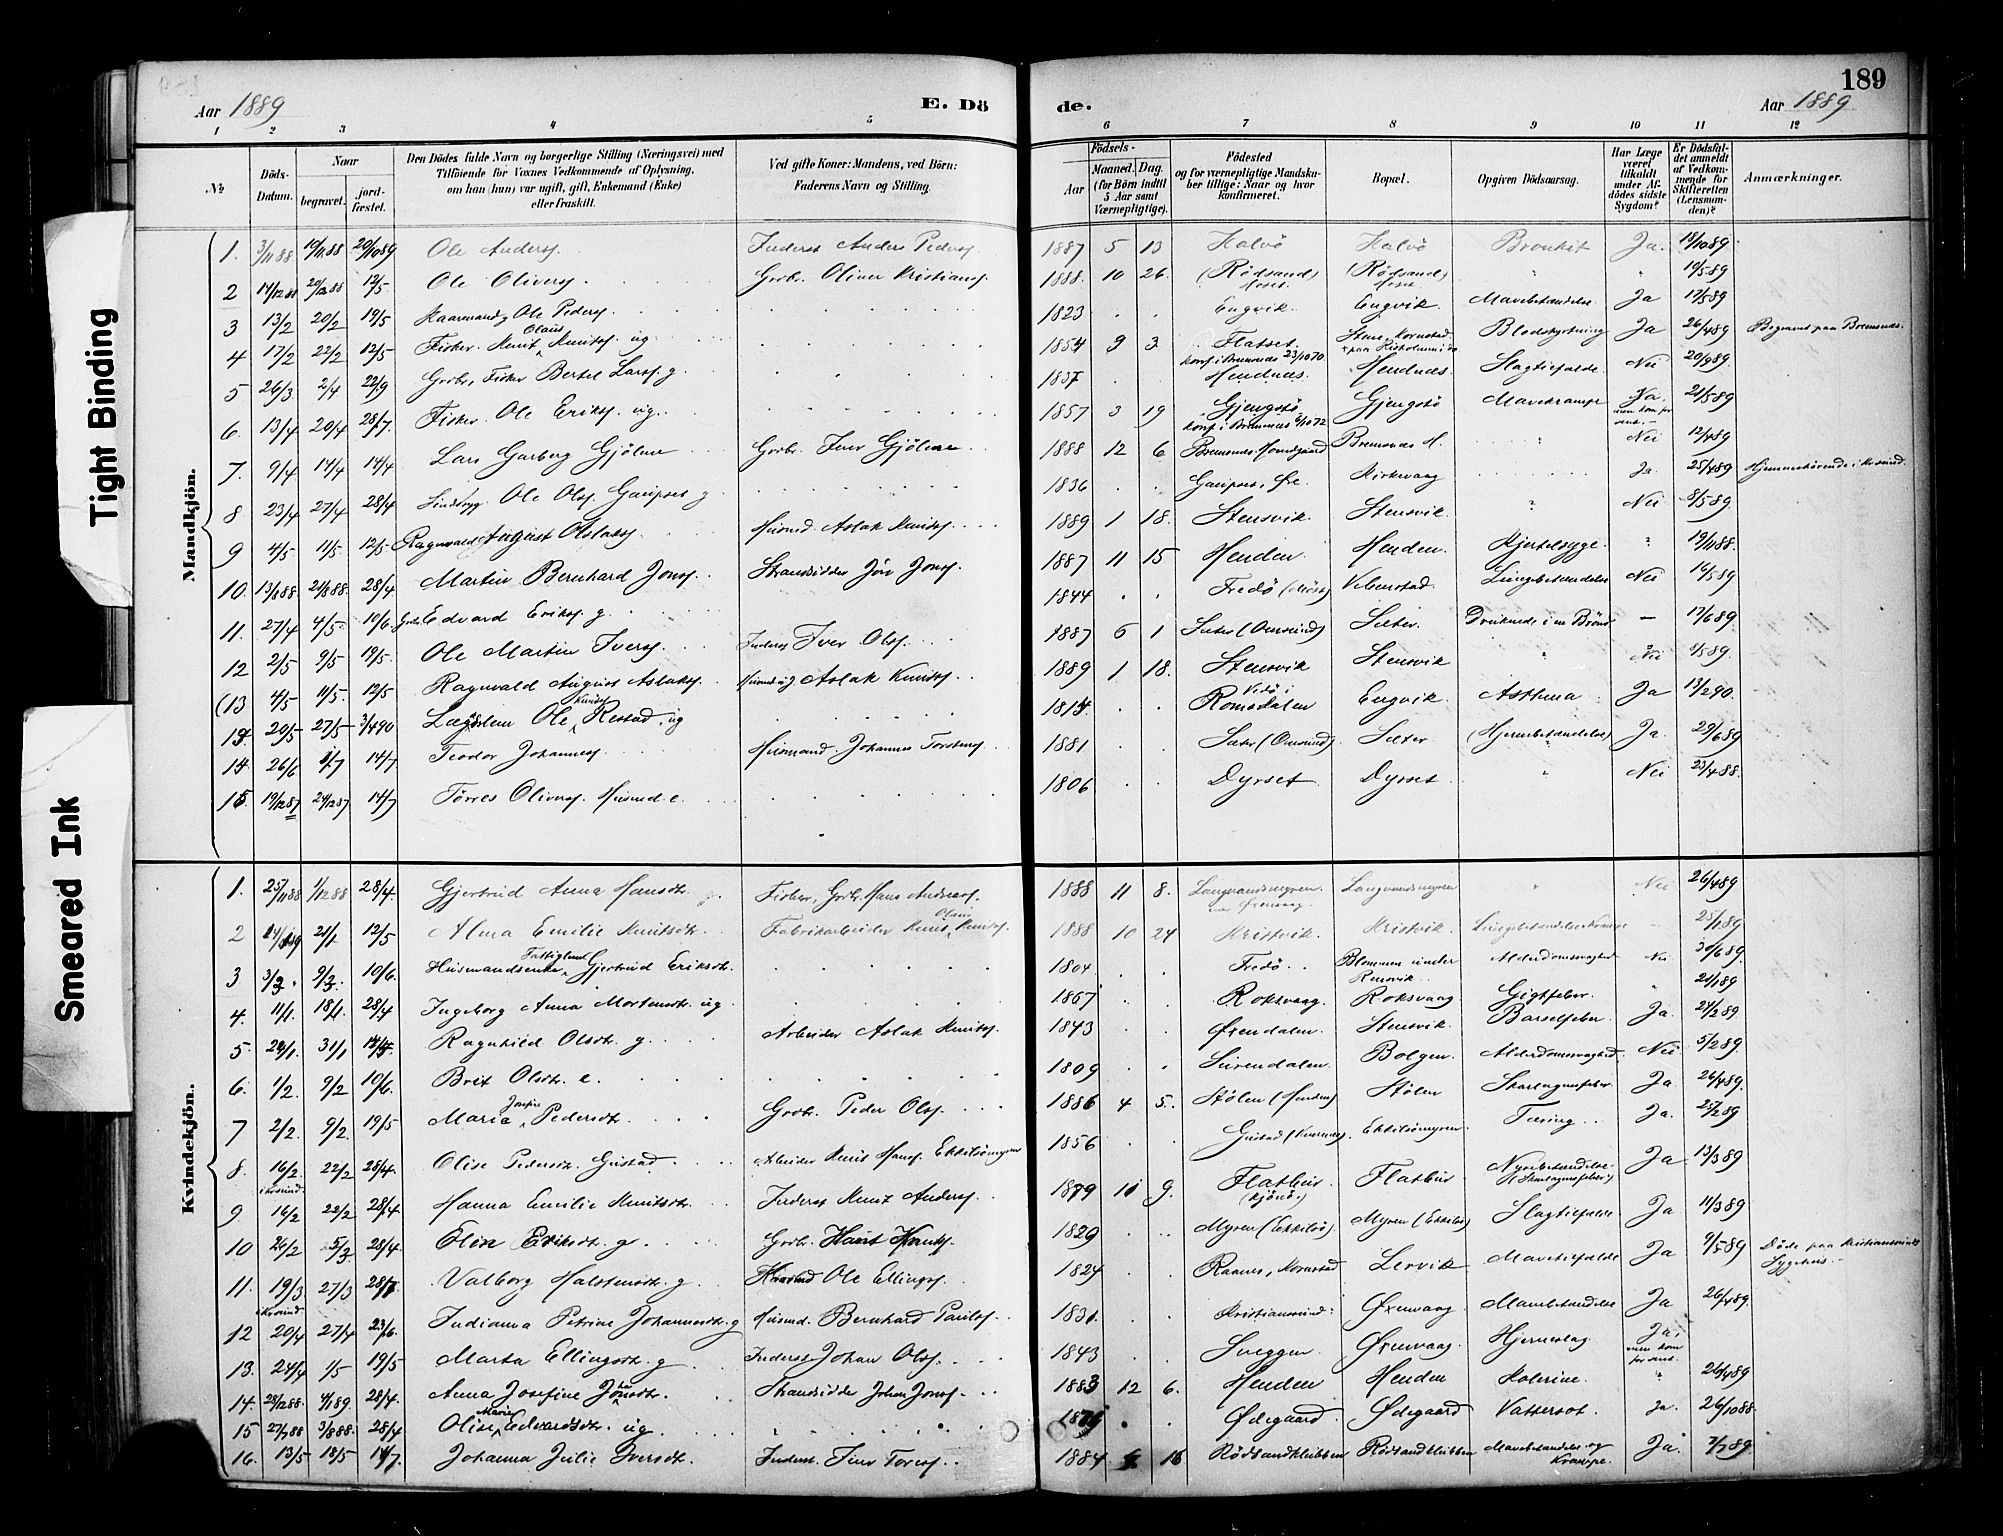 189
Aar 1889
E. Dö
de.
Aar 1889
1 2 3 4 5 6 7 8 9 10 11 12
Tight Binding
Smeared Ink
№
Döds-Datum.
Naar
begravet.
jord-fæstet.
Den Dödes fulde Navn og borgerlige Stilling (Næringsvei) med
Tilföiende for Voxnes Vedkommende af Oplysning,
om han (hun) var ugift, gift, Enkemand (Enke)
eller fraskilt.
Ved gifte Koner: Mandens, ved Börn:
Faderens Navn og Stilling.
Födsels-
Aar
Maaned. Dag.
(for Börn indtil
5 Aar samt
Værnepligtige).
Födested
og for værnepligtige Mandska-
ber tillige: Naar og hvor
konfirmeret.
Bopæl.
Opgiven Dödsaarsag.
Har Læge
været
tilkaldt
under Af-
dödes sidste
Sygdom?
Er Dödsfal-
det anmeldt
af Vedkom-
mende for
Skifteretten
(Lensman-
den)?
Anmærkninger.
Mandkjön.
1. 3/11 88 10/11 88 20/10 89 Ole Anders. Inderst Anders Peders. 1887 5 13 Kalvö Kalvö Bronkit Ja. 19/10 89
2 14/12 88 20/12 88 12/5 Ole Olivers. Grdbr. Oliver Kristians. 1888. 10 26. (Rödsand) Moset. (Rödsand) Moset. " " 10/5 89
3 13/2 20/2 19/5 Kaarmand Ole Peders. 1823 Engvik. Engvik. Mavebetændelse. Ja 17/5 89
4 17/2 22/2 12/5 Fisker. Knut Olaus Knuts. ug. 1854 9 3. Flatset. konf. i Bremsnes 23/10 70. Stene, Kornstad Blodstyrtning Ja 26/4 89 Begravet paa Bremsnes.
5 26/3 2/4 22/9 Grdbr., Fisker Bertel Lars. g. 1837 Hendnes. Hendnes. Slagtilfælde. Nei 20/9 89
6. 13/4 20/4 28/7. Fisker. Ole Eriks. ug. 1857 3 19 Gjengstö konf. i Bremsnes 6/10 72 Gjengstö Mavekrampe Ja, men kom for sent. 21/5 89
7. 9/4 14/4 14/4 Lars Garberg Gjölme Grdbr. Iver Gjölme 1888 12 6 Bremsnes Homdgaard Bremsnes H. " Nei 12/4 89
8 23/4 27/4 28/4 Sindssyg. Ole Ols. Gaupset g 1836 Gaupset, Öre Kirkevaag Ja. 25/4 89 Hjemmehörende i Krsund.
9 4/5 11/5 12/5 Ragnvald August Aslaks. Husmd. Aslak Knuts. 1889 1 18. Stensvik. Stensvik. " Nei 8/5 89
10. 13/8 88. 21/8 88. 28/4 Martin Bernhard Jons. Strandsidder Jon Jons. 1887 11 15 Henden Henden. Kjertelsyge. ? 19/11 88.
11. 27/4 4/5 10/6. Grdbr. Edvard Eriks. g. 1844 Fredö (Möst) Vebenstad. Lungebetændelse Nei 14/5 89
12 2/5 9/5 19/5. Ole Martin Ivers. Inderst Iver Ols. 1887 6 1 Sæter (Omsund) Sæter. Druknede i en Brönd — 17/6 89
(13 4/5 11/5. 12/5 Ragnvald August Aslaks. Husmd. ug. Aslak Knuts. 1889 1 18. Stensvik Stensvik " Nei 8/5 89.
13. 20/5 27/5 3/4 90 Lægdslem Ole Knuts. Restad, ug 1814 Vedö i Romsdalen Engvik. Asthma. Ja 13/2 90.
14 26/6 1/7 14/7 Teodor Johannes. Husmand. Johannes Torstens. 1881 Sæter (Omsund) Sæter. (Hjernebetændelse) Ja. 29/6 89
15. 19/12 87 24/12 87 14/7 Törres Olivers. Husmd. e. 1806 Dyrset Dyrset. " Nei 23/4 88.
Kvindekjön.
1. 25/11 88 1/12 88 28/4. Gjertrud Anna Hansdtr. Fisker, Grdbr. Hans Andreas. 1888 11 8. Langvandsmyren Langvandsmyren " Nei 26/4 89
2 21/1 12/5 Alma Emilie Knutsdtr. Fabrikarbeider Knut Olaus Knuts. 1888 10 24 Kristvik. Kristvik. Lungebetændelse Krampe 25/1 89
3 3/3. 9/3. 10/6. Husmandsenke Fattiglem Gjertrud Eriksdtr. 1804. Fredö. Blommen under Rensvik. Alderdomssvaghed Nei 30/6 89
4. 11/1. 18/1. 28/4 Ingeborg Anna Mortensdtr. ug 1867 Roksvaag. Roksvaag Gigtfeber. " 21/1 89
5 31/1 Ragnhild Olsdtr. g. Arbeider Aslak Knuts. 1843 Öxendalen. Stensvik. Barselfeber. Ja. 24/2 89
6. 1/2. 9/2 10/6. Brit Olsdtr. e. 1809 Surendalen. Bolgen. Alderdomssvaghed Nei 5/2 89.
7 2/2. 9/2. 19/5 Maria Josefine Pedersdtr. Grdbr. Peder Ols. 1886 4 5. Stölen (Henden) Stölen Skarlagensfeber. Ja. 26/4 89.
8. 16/2 i Krsund. 22/2 28/4. Olise Pedersdtr. Gustad. Arbeider Knut Hans. Ekkilsömyren 1856 Gustad (Kvernes). Ekkilsömyren. Tæring. Ja. 25/2 89
9 16/2 22/2 28/4 Hanna Emilie Knutsdtr. Inderst Knut Anders. 1879 10 9. Flatbur (Kjönö.) Flatbur Nyrebetændelse (Skarlagensfeber) Ja 13/3 89
10 26/2 5/3 28/4 Elen Eriksdtr. g. Grdbr. 1829 Myren (Ekkilsö) Myren (Ekkilsö) Slagtilfælde Ja 11/3 89
11. 19/3 i Krsund. 27/3 28/7 Valborg Halstensdtr. g Ole Ellings. 1824 Raanes, Kornstad Lervik Mavetilfælde Ja 9/5 89 Döde paa Kristianssunds Sygehus.
12 20/4 27/4 23/6. Indianna Petrine Johannesdtr. g Husmd. Bernhard Pauls. 1831. Kristianssund. Öxenvaag Mavebetændelse Ja 26/4 89.
13. 24/4 1/5 19/5 Marta Ellingsdtr. g Inderst Johan Ols. 1843 Sveggen Öxenvaag. Hjerneslag Ja, men kom for sent.
14. 28/12 88. 4/1 89. 28/4. Anna Josefine Johnsdtr. Strandsidder Johan Jons. 1883 12 6. Henden Henden Kolerine. " 26/4 89
15 27/7 88 3/8 88. 28/4 Olise Marie Edvardsdtr. ug. Ödegaard. Ödegaard Vattersot. Ja. 26/10 88.
16. 13/5 18/5 14/7. Johanna Julie Iversdtr. Inderst. Iver Tores. 1884 4 16 Rödsandklubben Rödsandklubben Mavebetændelse og Krampe. Ja. 7/7 89